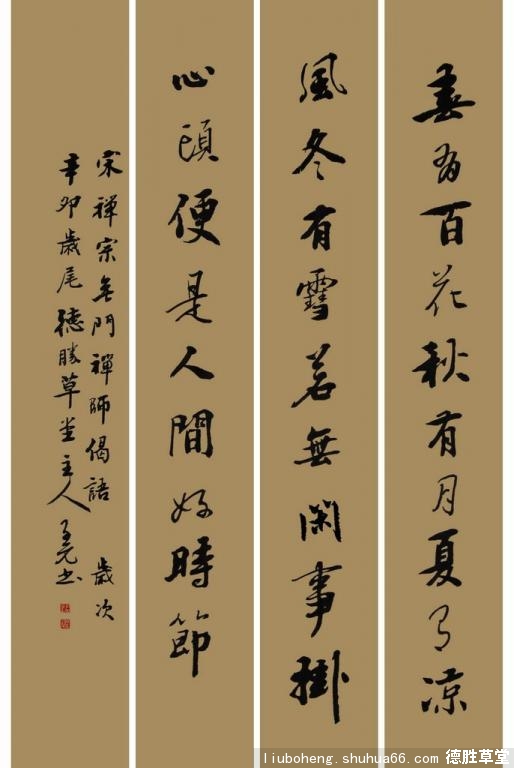 春有百花秋有月夏有凉
風冬有雪若無閑事掛
心頭便是人間好時節
宋禪宗無門禪師偈語 歲次
辛卯歲尾德勝草堂主人
liuboheng.shuhua66.com 德胜草堂